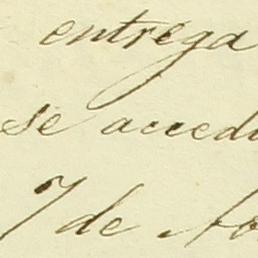 entrega
se acced
7 de